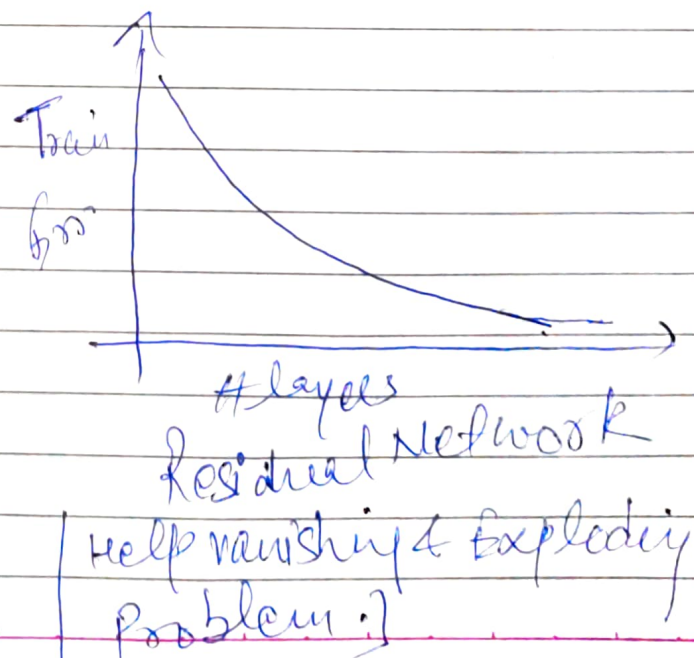 Train
Err
# layers
Residual Network
[Help vanishing & Exploding
Problem.]